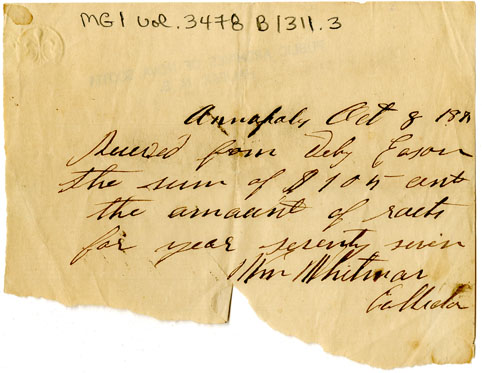 MG1 vol. 3478 B1311.3
Annapolis Oct 8 188
Received from Deby Eason
the sum of $1 05 cent
the amount of raets
for year seventy seven
Wm Whitmar
Collector